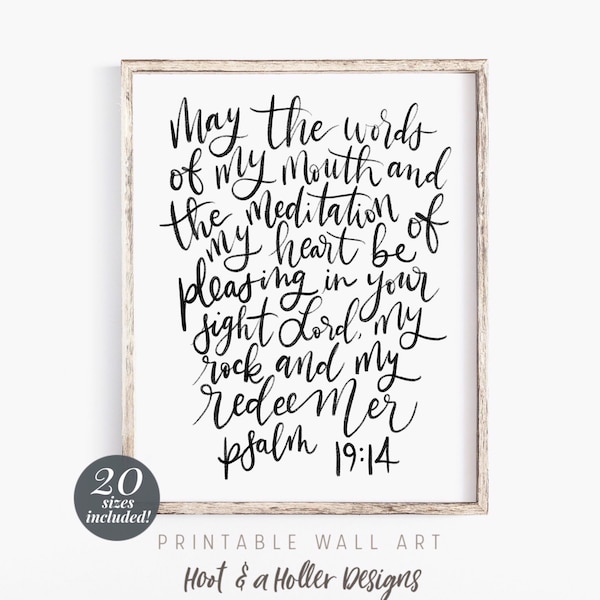 May the words
of my mouth and
the meditation of
my heart be
pleasing in your
sight Lord, my
rock and my
redeemer
psalm 19:14
20
sizes
included!
PRINTABLE WALL ART
Hoot & a Holler Designs